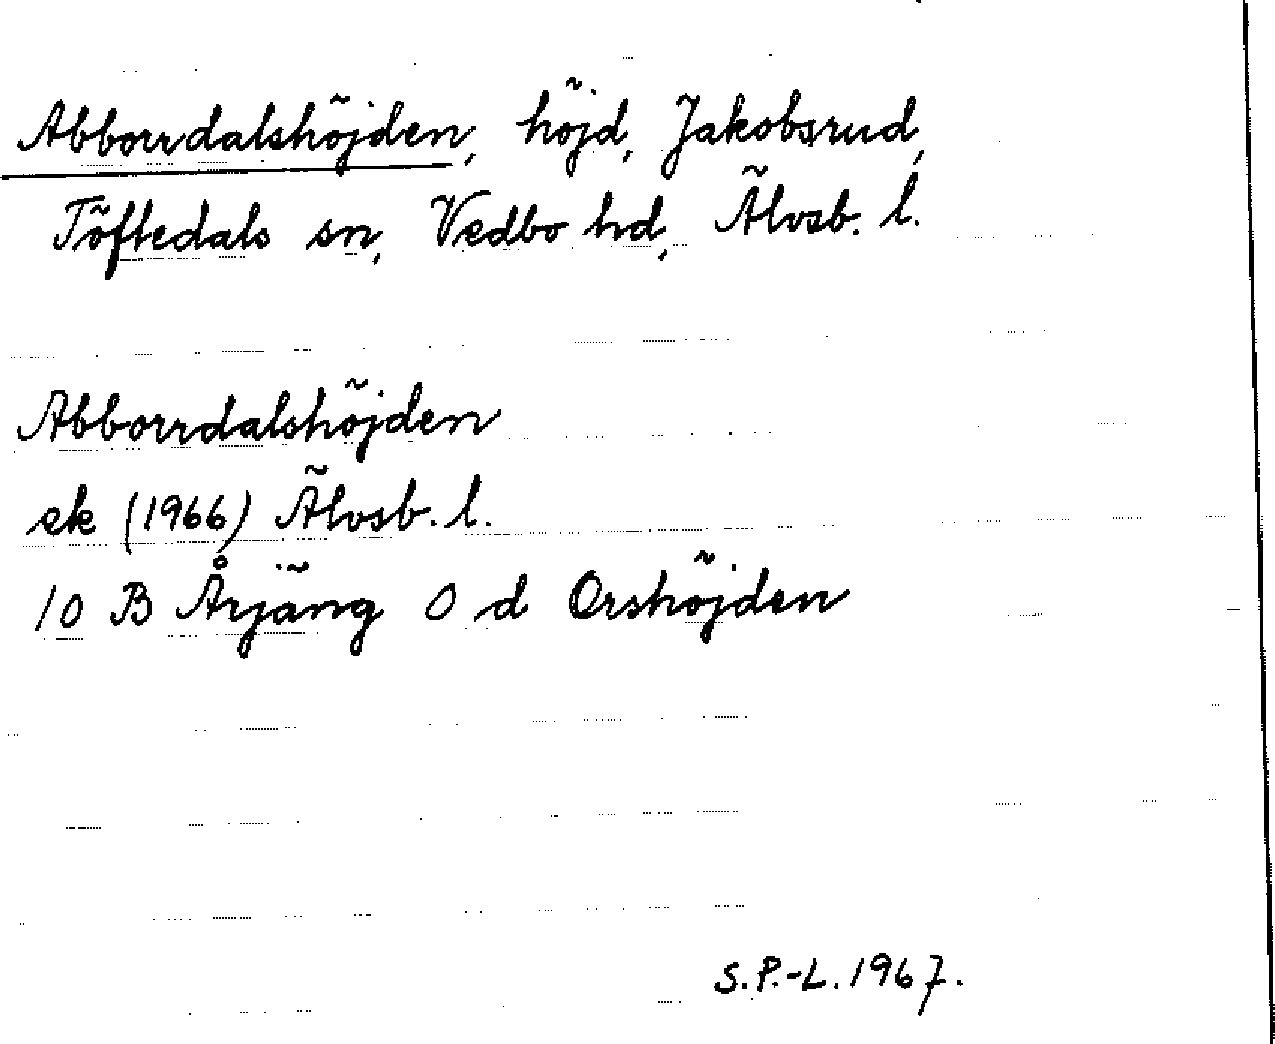 Abborrdalshöjden, höjd, Jakobsrud,
Töftedals sn, Vedbo hd, Älvsb. l.
Abborrdalshöjden
ek (1966) Älvsb. l.
10 B Årjäng 0 d Orshöjden
S.P.-L. 1967.